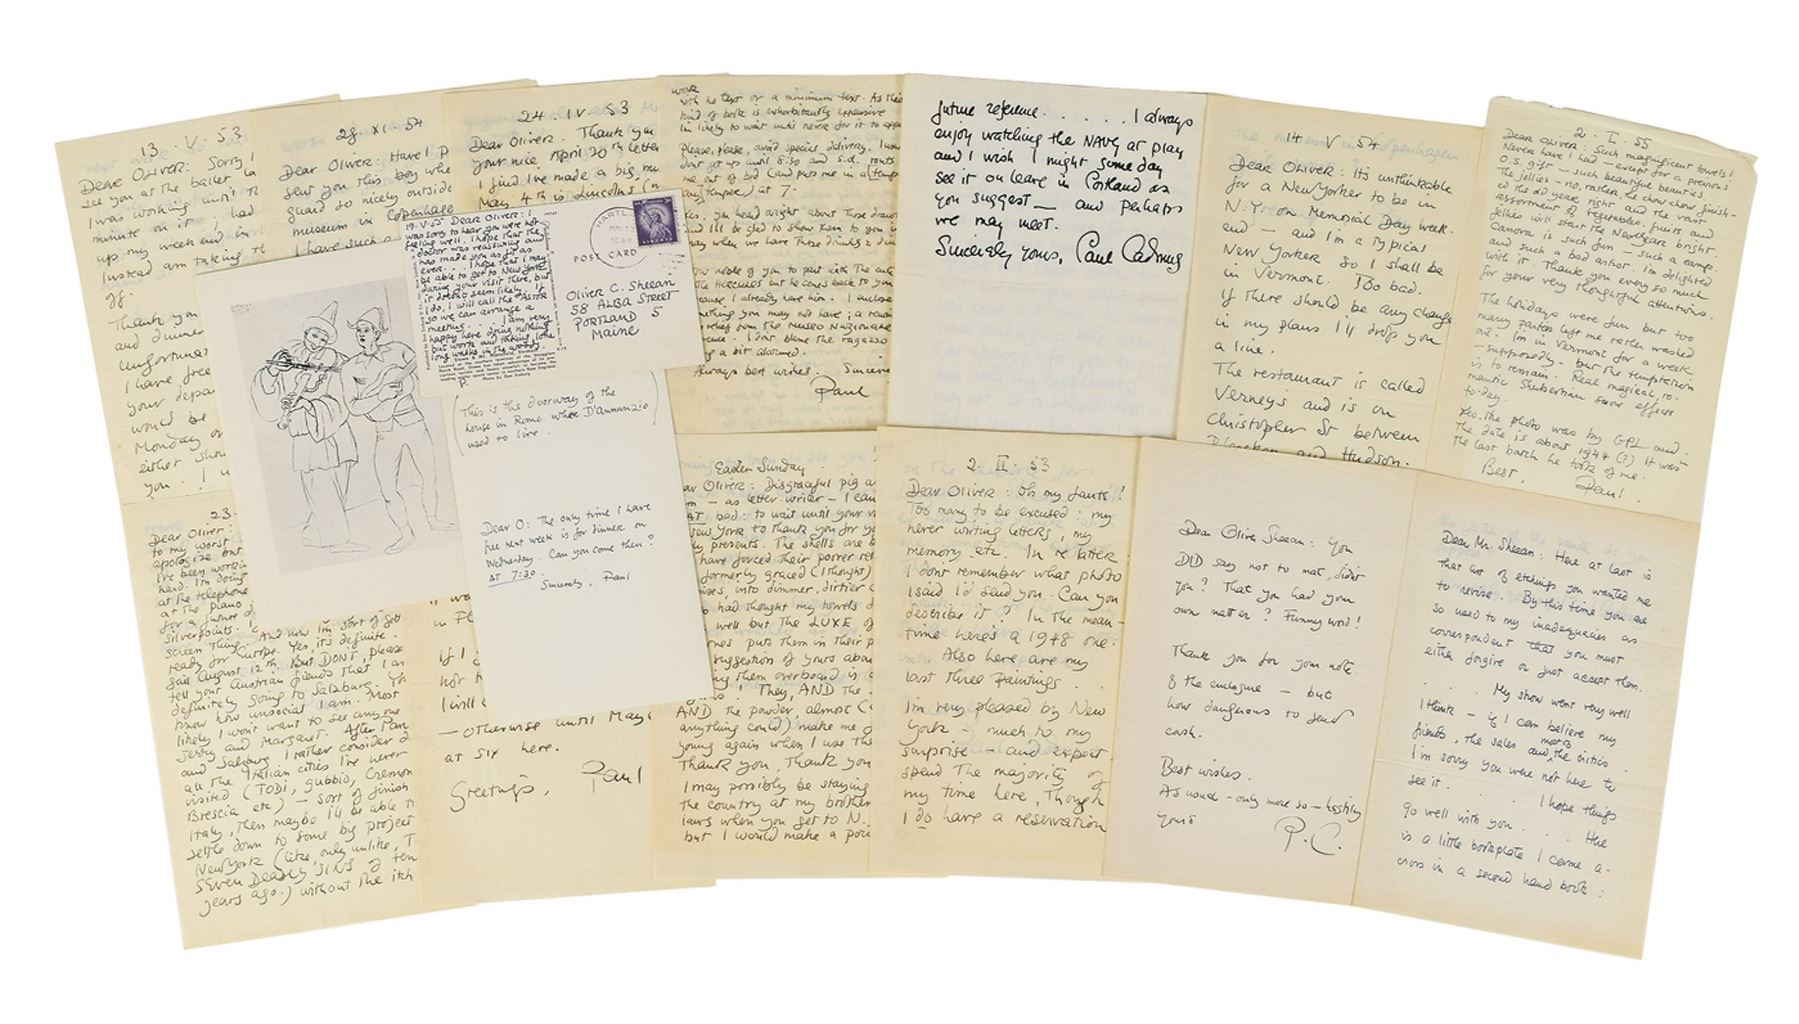 13. V. 53
Dear Oliver: Sorry I
see you at the ballet la
I was working until th
minute on it; had
up my week end in
Instead am taking th
off.
Thank you
and dinner
Unfortuna
I have free
your depa
would be
Monday or
either show
you. I w
28. XI. 54
Dear Oliver: Have I p
sent you this boy who
guard so nicely outside
museum in Copenhage
I have such a
24. IV. 53
Dear Oliver. Thank you
your nice April 20th letter
I find I've made a big mi
May 4th is Lincoln's (n
19.V.55 Dear Oliver: I
was sorry to hear you were not
feeling well. I hope that the
doctor was reassuring and
has made you as fit as
ever. . . I hope that I may
be able to get to New York
during your visit there, but
it doesn't seem likely. If
I do, I will call the ASTOR
so we can arrange a
meeting. . . I am very
happy here doing nothing
but work and taking long
long walks in the woods.
P.
POST CARD
Oliver C. Sheean
58 ALBA STREET
PORTLAND 5
Maine
(This is the doorway of the
house in Rome where D'Annunzio
used to live.)
Dear O: The only time I have
free next week is for dinner on
Wednesday. Can you come then?
AT 7:30.
Sincerely, Paul
work
with no text or a minimum text. As this
kind of book is exhorbitantly expensive
I'm likely to wait until never for it to app
Please, please, avoid special delivery. I wo
don't get up until 8:30 and s.d. routs
me out of bed (and puts me in a temp
any temper) at 7.
you heard aright about those draw
I'll be glad to show them to you
may when we have those drinks & din
How noble of you to part with the
the HERCULES but he comes back to you
because I already have him. I enclose
something you may not have; a
relief from the Museo Nazionale
I don't blame the ragazzo
a bit alarmed.
Always best wishes. Sincere
Paul
future reference. . . . . . I always
enjoy watching the NAVY at play
and I wish I might some day
see it on leave in Portland as
you suggest — and perhaps
we may meet.
Sincerely yours, Paul Cadmus
14 V 54
Dear Oliver: Its unthinkable
for a New Yorker to be in
N.Y. on Memorial Day week-
end — and I'm a typical
New Yorker so I shall be
in Vermont. Too bad.
If there should be any change
in my plans I'll drop you
a line.
The restaurant is called
Verneys and is on
Christopher St between
Bleecker and Hudson.
2. I. 55
Dear Oliver: Such magnificent towels!
Never have I had — except for a previous
O.S. gift — such beautiful beauties.
The jellies — no, rather, the chow chow finish-
ed the old year right and the vast
assortment of vegetables, fruits and
jellies will start the New Year bright.
Canova is such fun — such a camp.
and such a bad artist. I'm delighted
with it. Thank you ever so much
for your very thoughtful attentions.
The holidays were fun but too
many parties left me rather washed
out. I'm in Vermont for a week
— supposedly — but the temptation
is to remain. Real magical, ro-
mantic Shubertian snow effects
to-day.
Yes, the photo was by GPL and
the date is about 1944 (?) It was
the last batch he took of me.
Best, Paul.
23
Dear Oliver:
to my worst
apologize but
I've been workin
hard. I'm doing
at the telephone
at the piano
for a future
silverpoints.
screen thing. And now I'm sort of get
ready for Europe. Yes, it's definite.
sail August 12th. But DON'T, please
tell your Austrian friends that I am
definitely going to Salzburg.
know how unsocial I am. Most
likely I won't want to see anyone
Jerry and Margaret. After Pari
and Salzburg I rather consider
all the Italian cities I've never
visited (TODI, Gubbio, Cremon
Brescia etc) — sort of finish
Italy, then maybe I'll be able t
settle down to some big project
New York (like, only unlike, T
SEVEN DEADLY SINS of ten
years ago.) without the itch
in Fl
If I
not t
I will c
— otherwise until May
at six here.
Greetings, Paul
Easter Sunday
ar Oliver: Disgraceful pig a
m — as letter-writer — I can
AT bad: to wait until your vi
New York to thank you for yo
ly presents. The shells are b
have forced their poorer rel
formerly graced (I thought)
into dimmer, dirtier c
had thought my towels
well but the LUXE of
ones puts them in their p
suggestion of yours abou
ing them overboard is
! They, AND the
AND the powder, almost (
anything could) make me
young again when I use th
Thank you, Thank you
I may possibly be staying
the country at my brother
laws when you get to N.
but I would make a poin
2. II. 53
Dear Oliver: Oh my faults!
Too many to be excused: my
never writing letters, my
memory, etc. In re latter
I don't remember what photo
I said I'd send you. Can you
describe it? In the mean-
time here's a 1948 one.
Also here are my
last three paintings. .
I'm very pleased by New
York — much to my
surprise — and expect
spend the majority of
my time here, though
I do have a reservation
Dear Oliver Sheean: You
DID say not to mat, didn't
you? That you had your
own matter? Funny word!
Thank you for your note
& the enclosure — but
how dangerous to send
cash.
Best wishes.
As usual — only more so — hastily
yours P.C.
Dear Mr. Sheean: Here at last is
that list of etchings you wanted me
to revise. By this time you are
so used to my inadequacies as
correspondent that you must
either forgive or just accept them.
. . . My show went very well
I think — if I can believe my
friends, the sales and most of the critics.
I'm sorry you were not here to
see it. . . . I hope things
go well with you. . . . Here
is a little bookplate I came a-
cross in a second hand book: